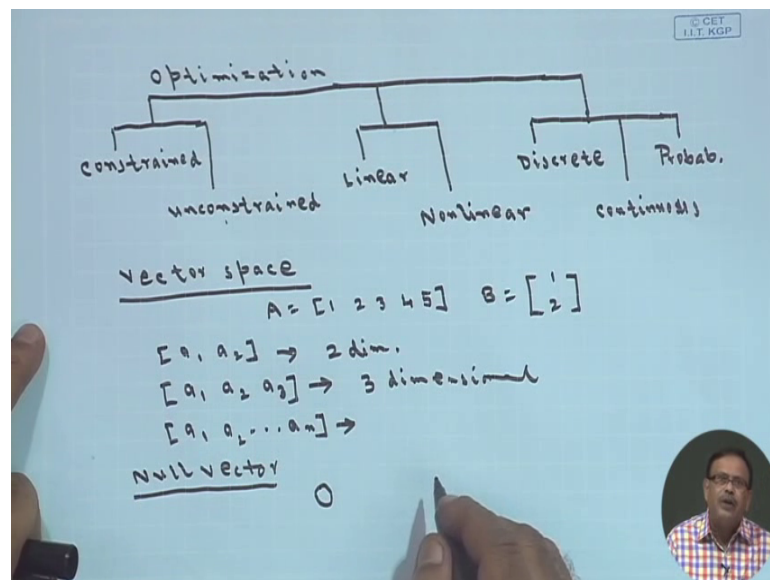 © CET
I.I.T. KGP
Optimization
Constrained
Unconstrained
Linear
Nonlinear
Discrete
Continuous
Probab.
Vector space
A = [1 2 3 4 5] B = [1 2]
[a₁ a₂] → 2 dim.
[a₁ a₂ a₃] → 3 dimensional
[a₁ a₂ ... aₙ] →
Null vector
O